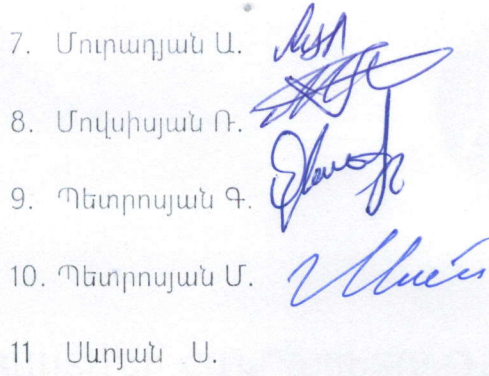 7. Մուրադյան Ա.
8. Մովսիսյան Ռ.
9. Պետրոսյան Գ.
10. Պետրոսյան Մ.
11 Սևոյան Ս.